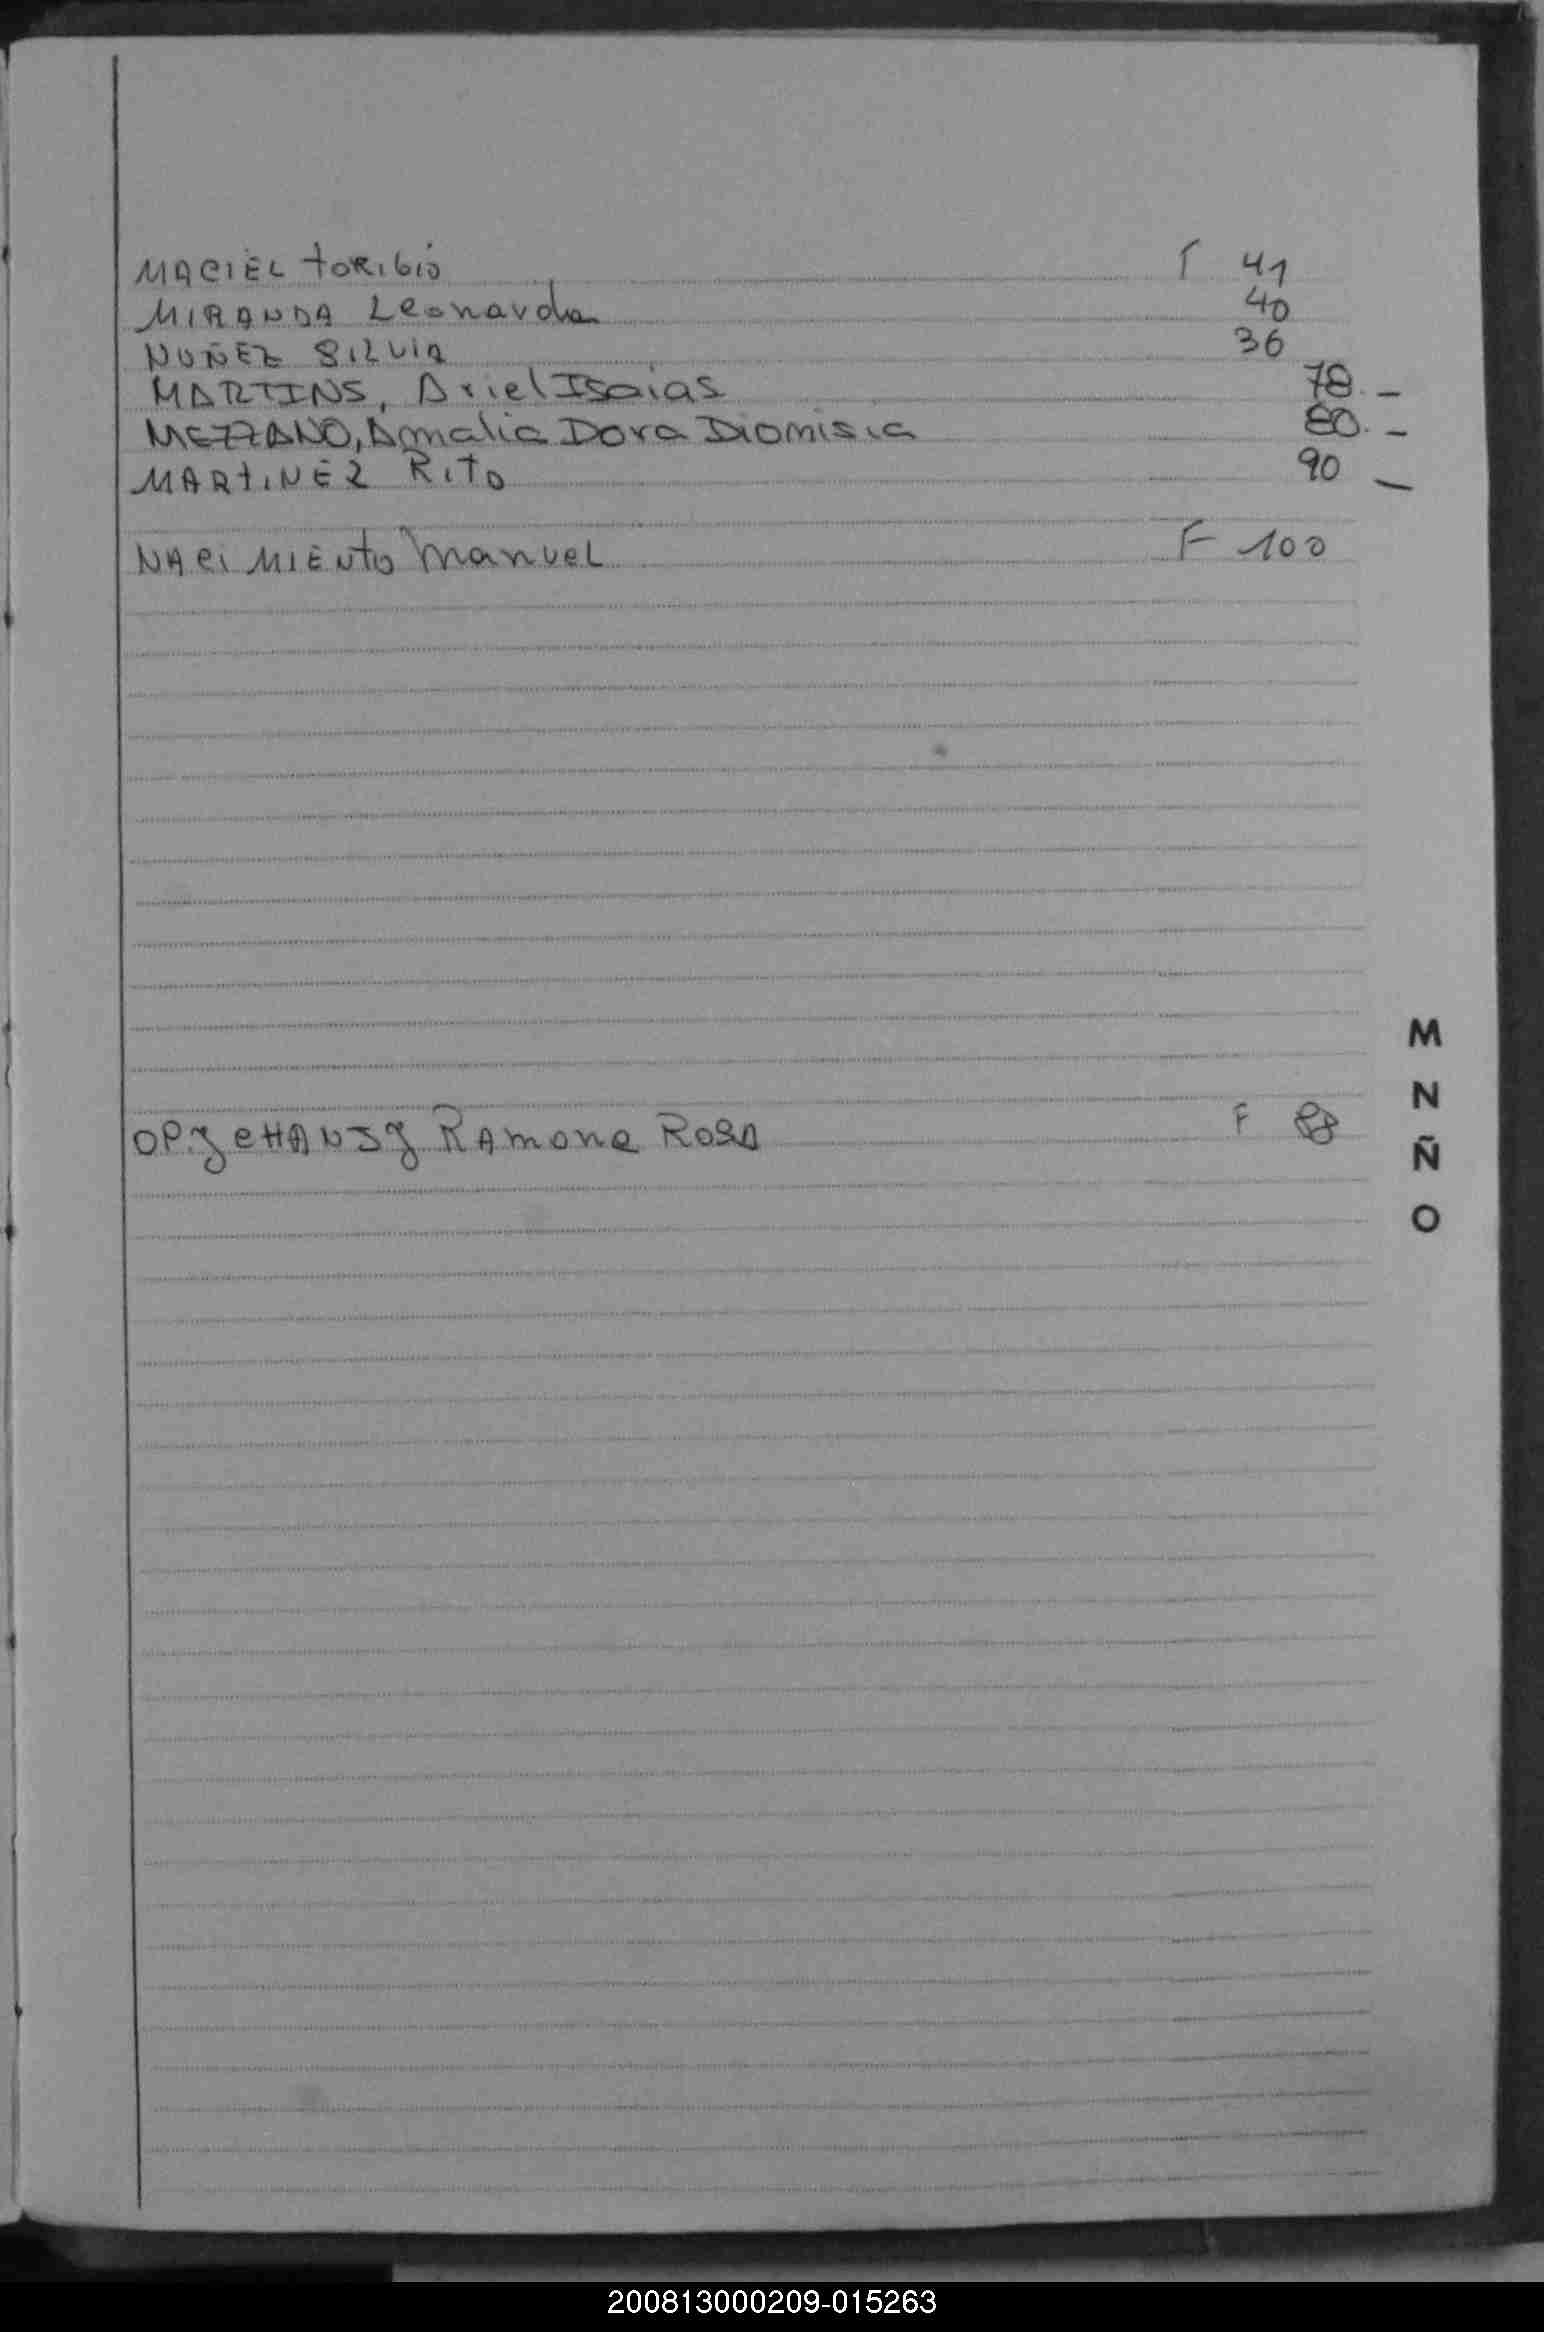 MACIEL toRibio F 41
MIRANDA Leonarda 40
NUÑEZ SILVIA 36
MARTINS, Ariel Isaias 78. -
MEZZANO, Amalia Dora Dionisia 80. -
MARtiNEZ RIto 90 -
NACIMIENto Manuel F 100
Ramona ROSA F 88
M
N
Ñ
O
200813000209-015263